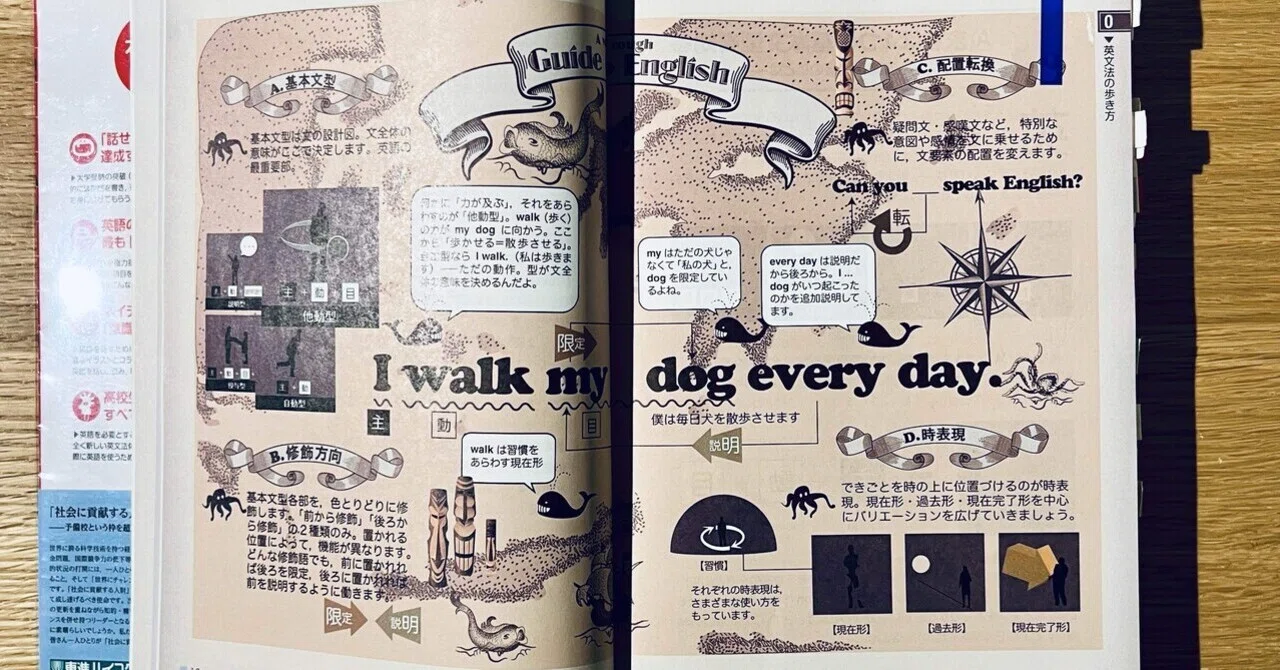 Guide
English
A. 基本文型
基本文型は文の設計図。文全体の
意味がここで決定します。英語の
最重要部。
に「力が及ぶ」、それをあら
わすのが「他動型」。walk（歩く）
の力が my dog に向かう。ここ
から「歩かせる＝散歩させる」。
自動型なら I walk.（私は歩きま
す）——ただの動作。型が文全
体の意味を決めるんだよ。
説明型
主 動 目
他動型
授与型
主 動
自動型
限定
I walk my dog every day.
主
動
目
僕は毎日犬を散歩させます
説明
B. 修飾方向
walk は習慣を
あらわす現在形
基本文型各部を、色とりどりに修
飾します。「前から修飾」「後ろか
ら修飾」の2種類のみ。置かれる
位置によって、機能が異なります。
どんな修飾語でも、前に置かれれ
ば後ろを限定、後ろに置かれれば
前を説明するように働きます。
限定
説明
C. 配置転換
疑問文・感嘆文など，特別な
意図や感情を文に乗せるため
に，文要素の配置を変えます。
Can you speak English?
転
my はただの犬じゃ
なくて「私の犬」と，
dog を限定してい
るよね。
every day は説明だ
から後ろから。I ...
dog がいつ起こった
のかを追加説明して
ます。
D. 時表現
できごとを時の上に位置づけるのが時表
現。現在形・過去形・現在完了形を中心
にバリエーションを広げていきましょう。
［習慣］
それぞれの時表現は，
さまざまな使い方を
もっています。
［現在形］
［過去形］
［現在完了形］
0
▼英文法の歩き方
「話せ
達成す
英語の
最も
高校
すべ
「社会に貢献する